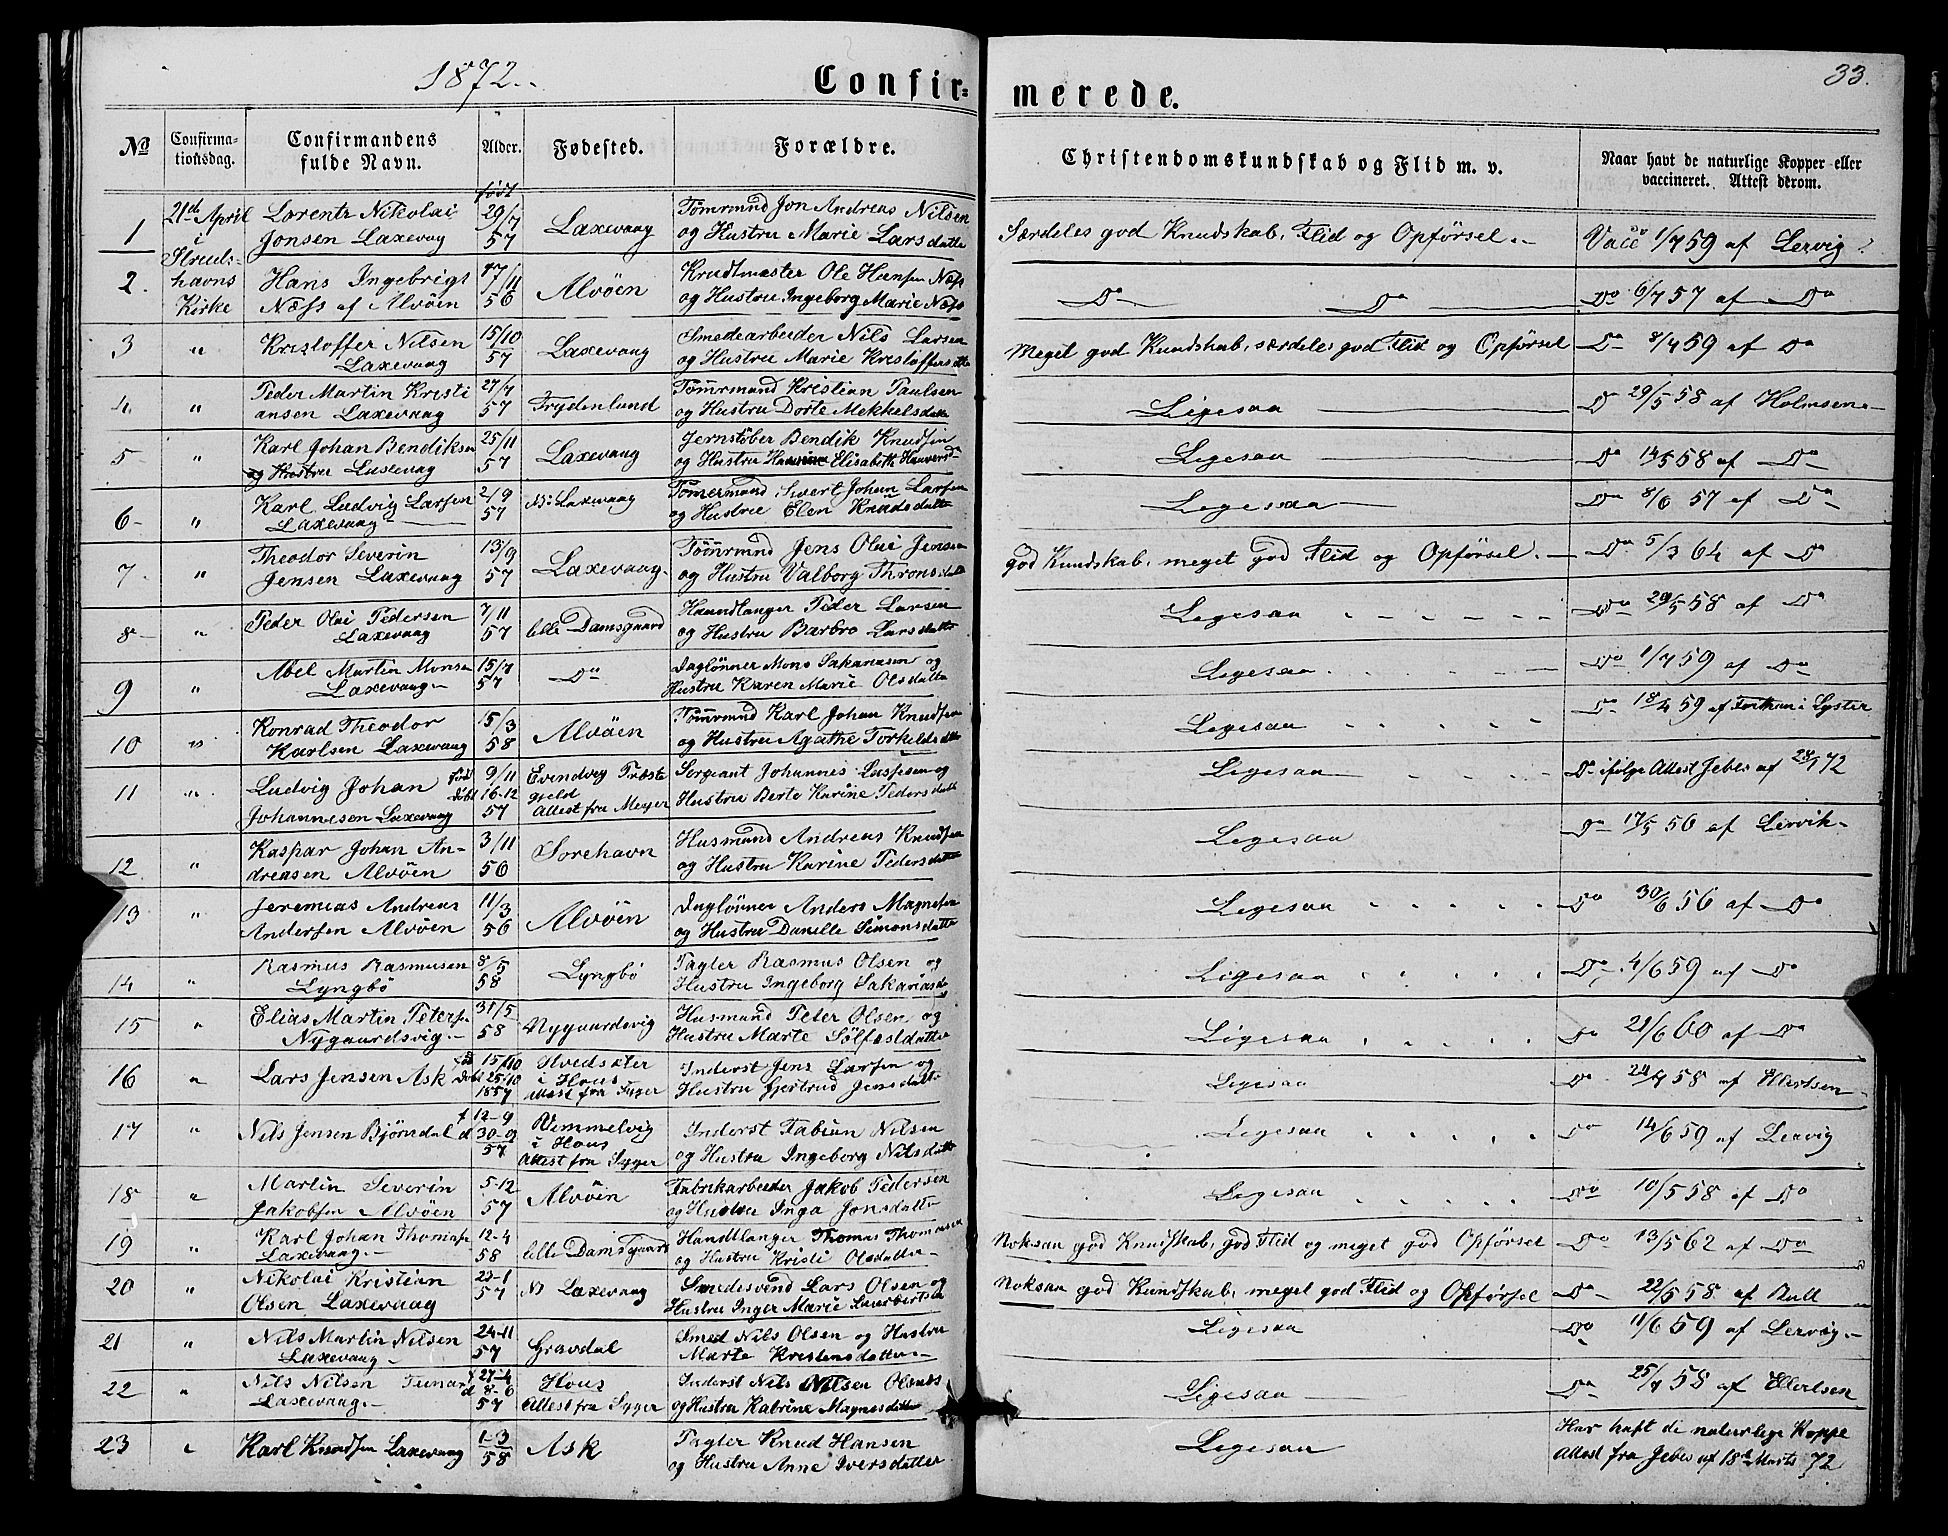 1872.
Confir=
merede.
33.
No
Confirma-
tionsdag.
Confirmandens
fulde Navn.
Alder.
Fødested.
Forældre.
Christendomskundskab og Flid m. v.
Naar havt de naturlige Kopper eller
vaccineret. Attest derom.
født
1
21de April
i
Struds-
havns
Kirke
Lorentz Nikolai
Jonsen Laxevaag
29/7
57
Laxevaag
Tømrmnd Jon Andreas Nilsen
og Hustru Marie Larsdatte
Særdeles god Kundskab, Flid og Opførsel.
Vacc 1/7 59 af Lervig
2.
Hans Ingebrigt
Næss af Alvöen
17/11
56
Alvöen
Krudtmester Ole Hansen Næss
og Hustru Ingeborg Marie Næss
Do Do
Do 6/7 57 af Do
3
"
Kristoffer Nilsen
Laxevaag
15/10
57
Laxevaag
Smedearbeider Nils Larsen
og Hustru Marie Kristoffersdtte
Meget god Kundskab, særdeles god Flid og Opførsel
Do 8/7 59 af Do
4.
"
Peder Martin Kristi
ansen Laxevaag
27/7
57
Frydenlund
Tømrmand Kristian Paulsen
og Hustru Dorte Mekkelsdatte
Ligesaa
Do 29/5 58 af Holmsen
5
"
Karl Johan Bendiksen
og Hustru Laxevaag
25/11
57
Laxevaag
Jernstøber Bendik Knudsen
og Hustru Elisabeth
Ligesaa
Do 14/5 58 af Do
6
"
Karl Ludvig Larsen
Laxevaag
2/9
57
N: Laxevaag
Tømermand Sivert Johan Larsen
og Hustru Elen Knudsdatte
Ligesaa
Do 8/6 57 af Do
7.
"
Theodor Severin
Jensen Laxevaag
13/9
57
Laxevaag.
Tømrmnd Jens Olai Jensen
og Hustru Valborg Thronsdatte
god Kundskab, meget god Flid og Opførsel.
Do 5/3 64 af Do
8
"
Peder Olai Pedersen
Laxevaag
7/11
57
lille Damsgaard
Haandlanger Peder Larsen
og Hustru Barbro Larsdatte
Ligesaa
Do 29/5 58 af Do
9
"
Abel Martin Monsen
Laxevaag
15/7
57
Do
Dagløner Mons Sakariasen og
Hustru Karen Marie Olsdatte
Ligesaa
Do 1/7 59 af Do
10
"
Konrad Theodor
Karlsen Laxevaag
15/3
58
Alvöen
Tømrmnd Karl Johan Knudsen
og Hustru Agathe Torkelsdatte
Ligesaa
Do 18/ 59 af i Lyster
11
"
Ludvig Johan
Johannesen Laxevaag
født
døbt
9/11
16-12
57
Evindvig Præste
gjeld
Attest fra Meyer
Sergeant Johannes og
Hustru Berte Karine Pedersdatte
Ligesaa
Do ifølge Attest Jebes af 72
12
"
Kaspar Johan An-
dreasen Alvöen
3/11
56
Sorehavn
Husmand Andreas Knudsen
og Hustru Karine Pedersdatte
Ligesaa
Do 17/5 56 af Lervik
13
"
Jeremias Andreas
Andersen Alvöen
11/3
56
Alvöen
Dagløner Anders Magnesen
og Hustru Danielle Simonsdatte
Ligesaa
Do 30/6 56 af Do
14
"
Rasmus Rasmusen
Lyngbö
8/5
58
Lyngbö
Pagter Rasmus Olsen og
Hustru Ingeborg Sakariasd
Ligesaa
Do 4/6 59 af Do
15
"
Elias Martin Petersen
Nygaardsvig.
31/5
58
Nygaardsvig
Husmand Peter Olsen og
Hustru Marte Sölfæstdatter
Ligesaa
Do 21/6 60 af Do
16
"
Lars Jensen Ask
fød
Døbt
15/10
25/10
1857
i Hous
Attest fra Syger
Inderst Jens Larsen og
Hustru Gjertrud Jensdatte
Ligesaa
Do 24/7 58 af Ellertsen
17
"
Nils Jensen Bjørndal
f
d
12-9
30-9
57
Remmelvig
i Hous
Attest fra Syger
Inderst Fabian Nilsen
og Hustru Ingeborg Nilsdatte
Ligesaa
Do 14/6 59 af Lervig
18
"
Martin Severin
Jakobsen Alvöen
5-12
57
Alvöen
Fabrikarbeider Jakob Pedersen
og Hustru Inga Jonsdatte
Ligesaa
Do 10/5 58 af Do
19
"
Karl Johan Thomasen
Laxevaag.
12-4
58
lille Damsgaard
Handtlanger Thomas Thomasen
og Hustru Kristi Olsdatter
Noksaa god Kundskab, god Flid og meget god Opførsel
Do 13/5 62 af Do
20
"
Nikolai Kristian
Olsen Laxevaag
23-1
57
N Laxevaag
Smedesvend Lars Olsen og
Hustru Inger Marie
Noksaa god Kundskab, meget god Flid og Opførsel
Do 22/5 58 af Bull
21
"
Nils Martin Nilsen
Laxevaag
24-11
57
Gravdal
Smed Nils Olsen og Hustru
Marte Kristensdatter
Ligesaa
Do 11/6 59 af Lervig.
22
"
Nils Nilsen
Laxevaag.
f
d
27-4
8-6
57
Hous
Attest fra Syger
Inderst Nils Nilsen
og Hustru Katrine Magnesdatte
Ligesaa
Do 25/7 58 af Ellertsen
23
"
Karl Knudsen Laxevaag
1-3
58
Ask
Pagter Knud Hansen
og Hustru Anne Iversdatter
Ligesaa
Har haft de naturlige Koppe
Attest fra Jebes af 18de Marts 72